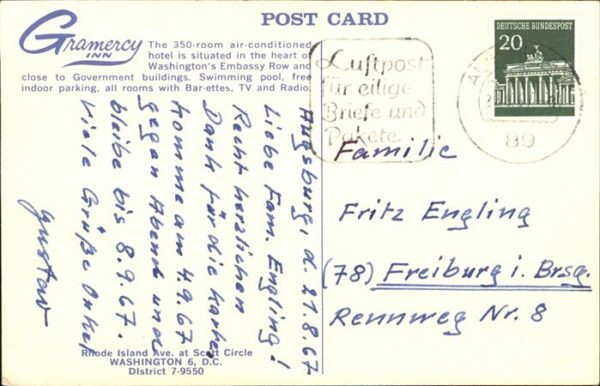 POST CARD
Gramercy
INN
The 350-room air-conditioned
hotel is situated in the heart of
Washington's Embassy Row and
close to Government buildings. Swimming pool, free
indoor parking, all rooms with Bar-ettes, TV and Radio.
Augsburg, d. 21.8.67
Liebe Fam. Engling!
Recht herzlichen
Dank für die Karte,
komme am 4.9.67
gegen Abend und
bleibe bis 8.9.67.
Viele Grüße Onkel
Gustav
Rhode Island Ave. at Scott Circle
WASHINGTON 6, D.C.
District 7-9550
Luftpost
für eilige
Briefe und
Pakete
DEUTSCHE BUNDESPOST
20
89
Familie
Fritz Engling
(78) Freiburg i. Brsg.
Rennweg Nr. 8